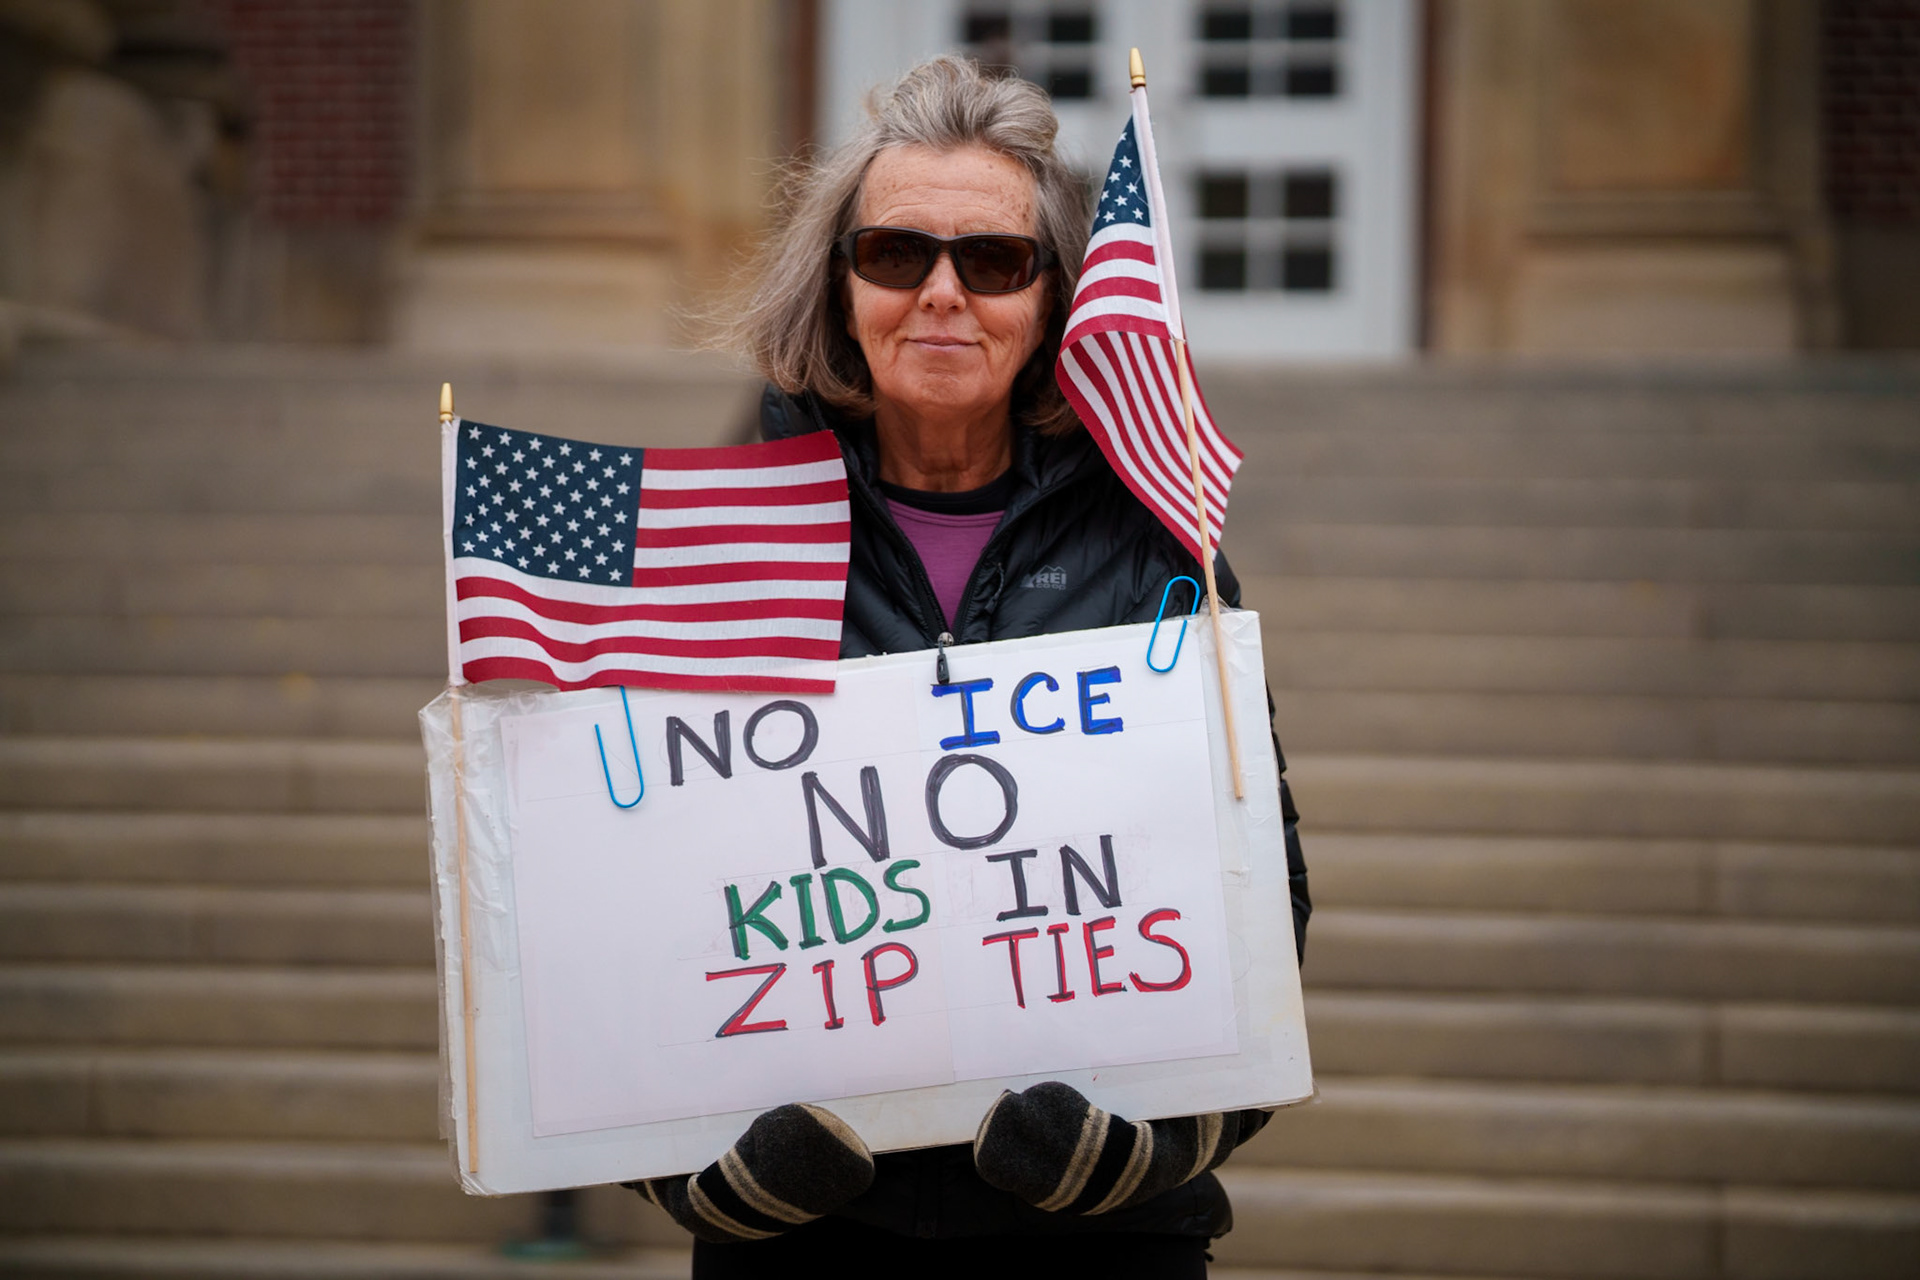 REI
CO·OP
NO ICE
NO
KIDS IN
ZIP TIES